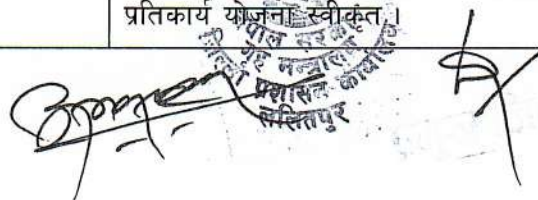 प्रतिकार्य योजना स्वीकृत ।
नेपाल सरकार
गृह मन्त्रालय
जिल्ला प्रशासन कार्यालय
ललितपुर